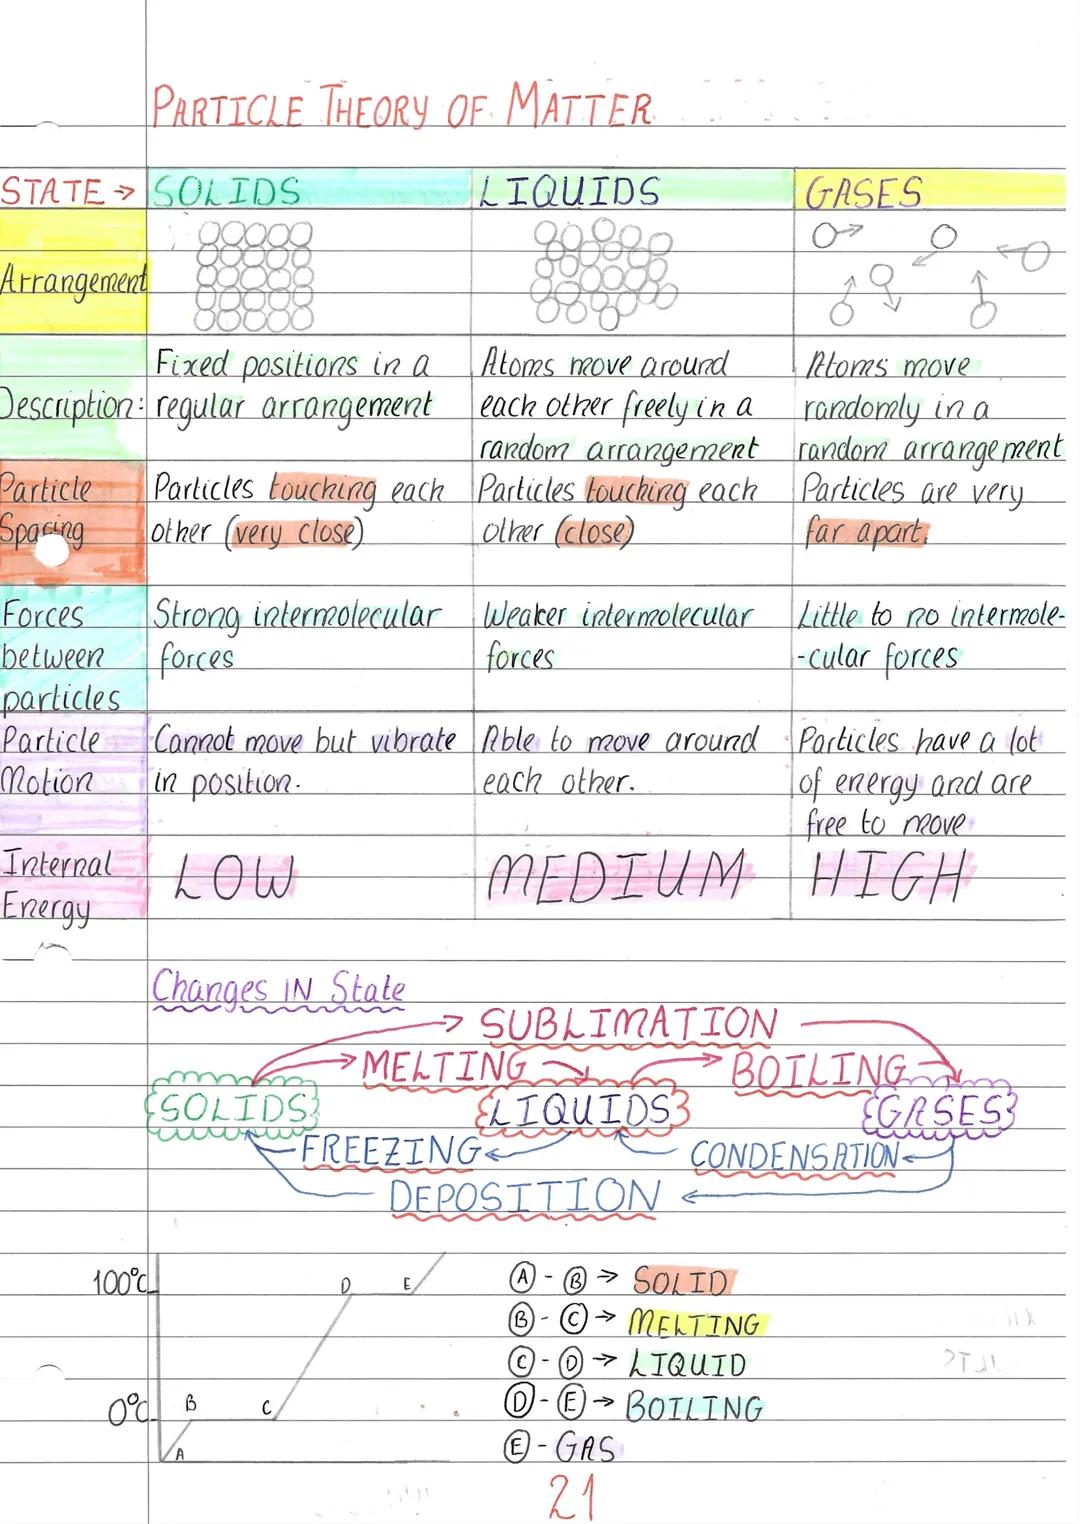 PARTICLE THEORY OF MATTER
STATE → SOLIDS LIQUIDS GASES
Arrangement
Description:
Fixed positions in a
regular arrangement
Atoms move around
each other freely in a
random arrangement
Atoms move
randomly in a
random arrangement
Particle
Spacing
Particles touching each
other (very close)
Particles touching each
other (close)
Particles are very
far apart.
Forces
between
particles
Strong intermolecular
forces
Weaker intermolecular
forces
Little to no intermole-
-cular forces
Particle
Motion
Cannot move but vibrate
in position.
Able to move around
each other.
Particles have a lot
of energy and are
free to move
Internal
Energy
LOW
MEDIUM
HIGH
Changes IN State
SUBLIMATION
MELTING BOILING
SOLIDS LIQUIDS GASES
FREEZING CONDENSATION
DEPOSITION
100°C
D E
0°C
B C
A
A - B → SOLID
B - C → MELTING
C - D → LIQUID
D - E → BOILING
E - GAS
21